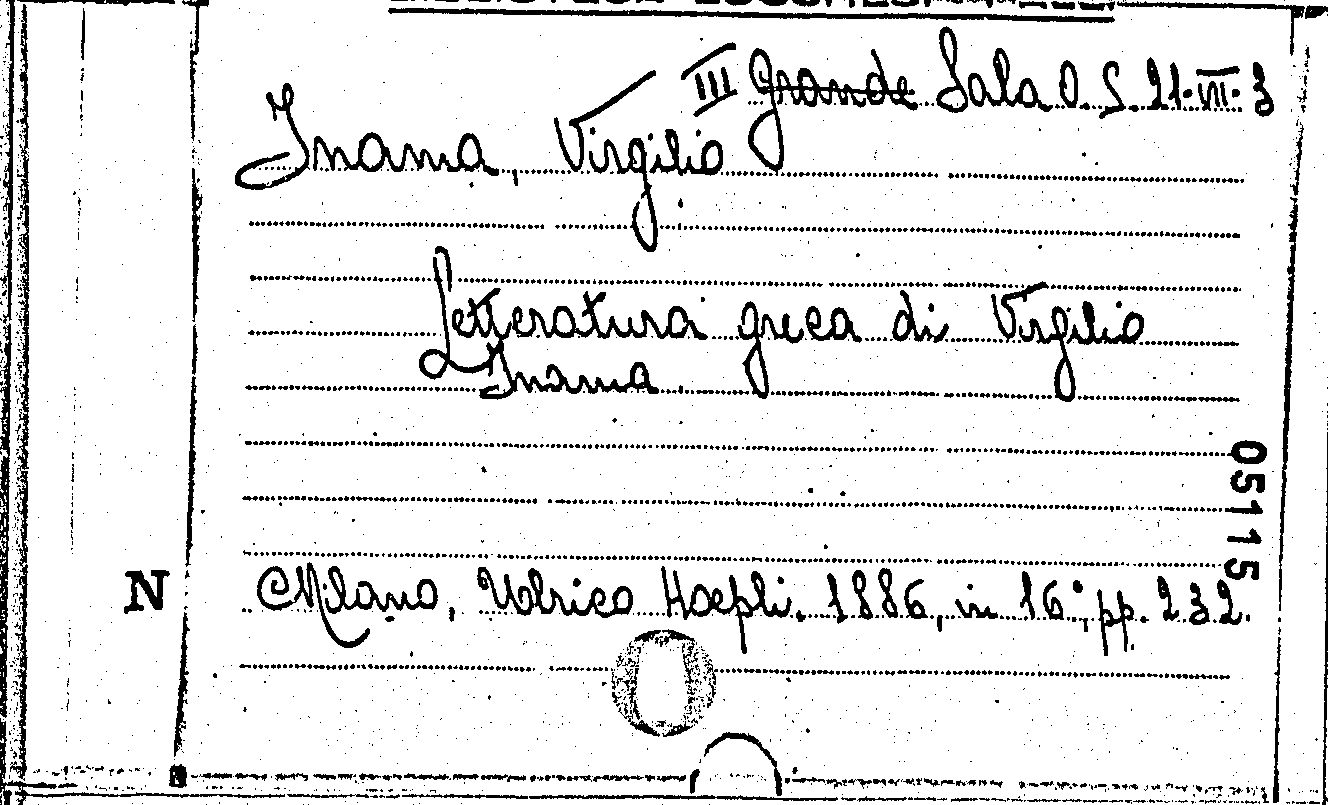 III Grande Sala O. S. 21-VII-3
Inama, Virgilio
Letteratura greca di Virgilio
Inama.
05115
N
Milano, Ulrico Hoepli. 1886, in 16°, pp. 232.